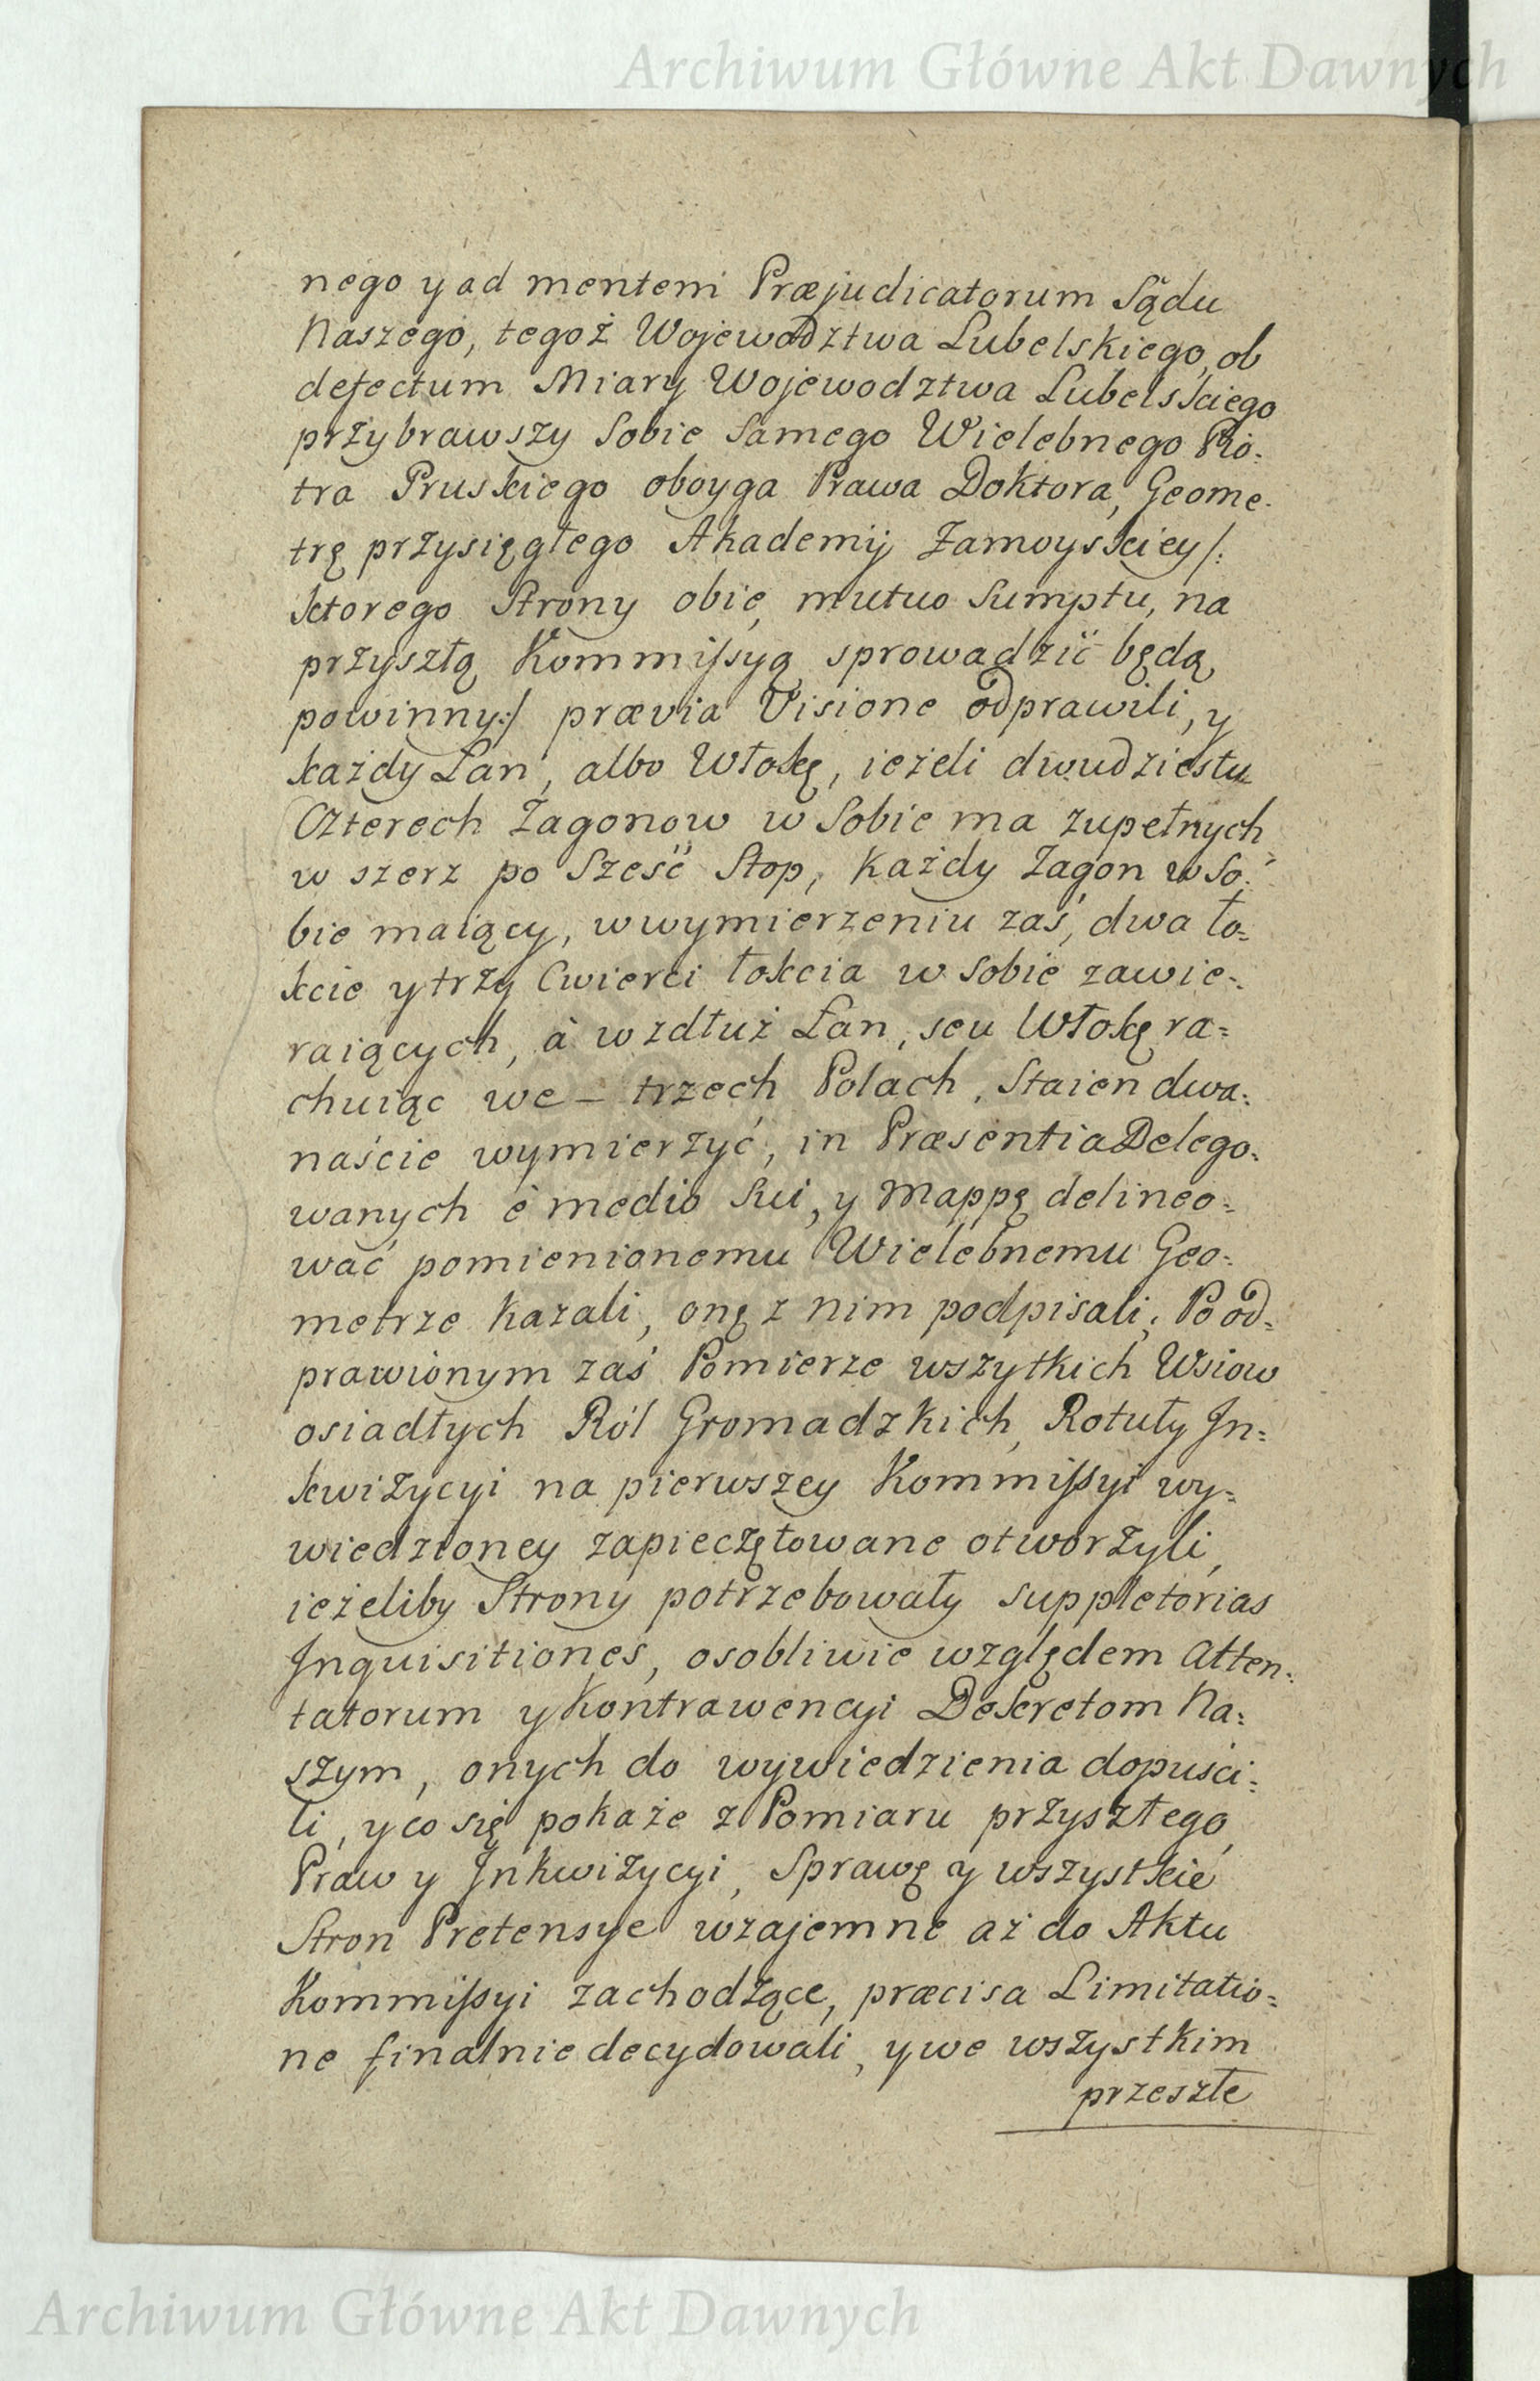 Archiwum Główne Akt Dawnych
nego y ad mentem Præjudicatorum Sądu
Naszego, tegoż Wojewodztwa Lubelskiego, ob
defectum Miary Wojewodztwa Lubelskiego
przybrawszy Sobie Samego Wielebnego Pio:
tra Pruskiego oboyga Prawa Doktora, Geome:
trę przysięgłego Akademij Zamoyskiey /:
ktorego Strony obie, mutuo Sumptu, na
przyszłą Kommissyą sprowadzić będą
powinny:/ prævia Visione odprawili, y
każdy Łan, albo Włokę, ieżeli dwudziestu
Czterech Zagonow w Sobie ma zupełnych
w szerz po Sześć Stop, każdy Zagon w So:
bie maiący, w wymierzeniu zaś, dwa ło=
kcie y trzy Cwierci łokcia w Sobie zawie=
raiących, à w zdłuż Łan, seu Włokę ra=
chuiąc we – trzech Polach, Staien dwa:
naście wymierzyć, in Præsentia Delego:
wanych è medio Sui, y Mappę delineo:
wać pomienionemu Wielebnemu Geo:
metrze kazali, onę z nim podpisali; Po od=
prawionym zaś Pomierze wszytkich Wsiow
osiadłych Ról Gromadzkich, Rotuły In=
kwizycyi na pierwszey Kommissyi wy=
wiedzioney zapieczętowane otworzyli,
ieżeliby Strony potrzebowały suppletorias
Inquisitiones, osobliwie względem Atten:
tatorum y Kontrawencyi Dekretom Na:
szym, onych do wywiedzienia dopuści:
li, y co się pokaże z Pomiaru przyszłego,
Praw y Inkwizycyi, Sprawę y wszystkie
Stron Pretensye wzajemne aż do Aktu
Kommissyi zachodzące, præcisa Limitatio=
ne finalnie decydowali, y we wszystkim
przeszłe
Archiwum Główne Akt Dawnych